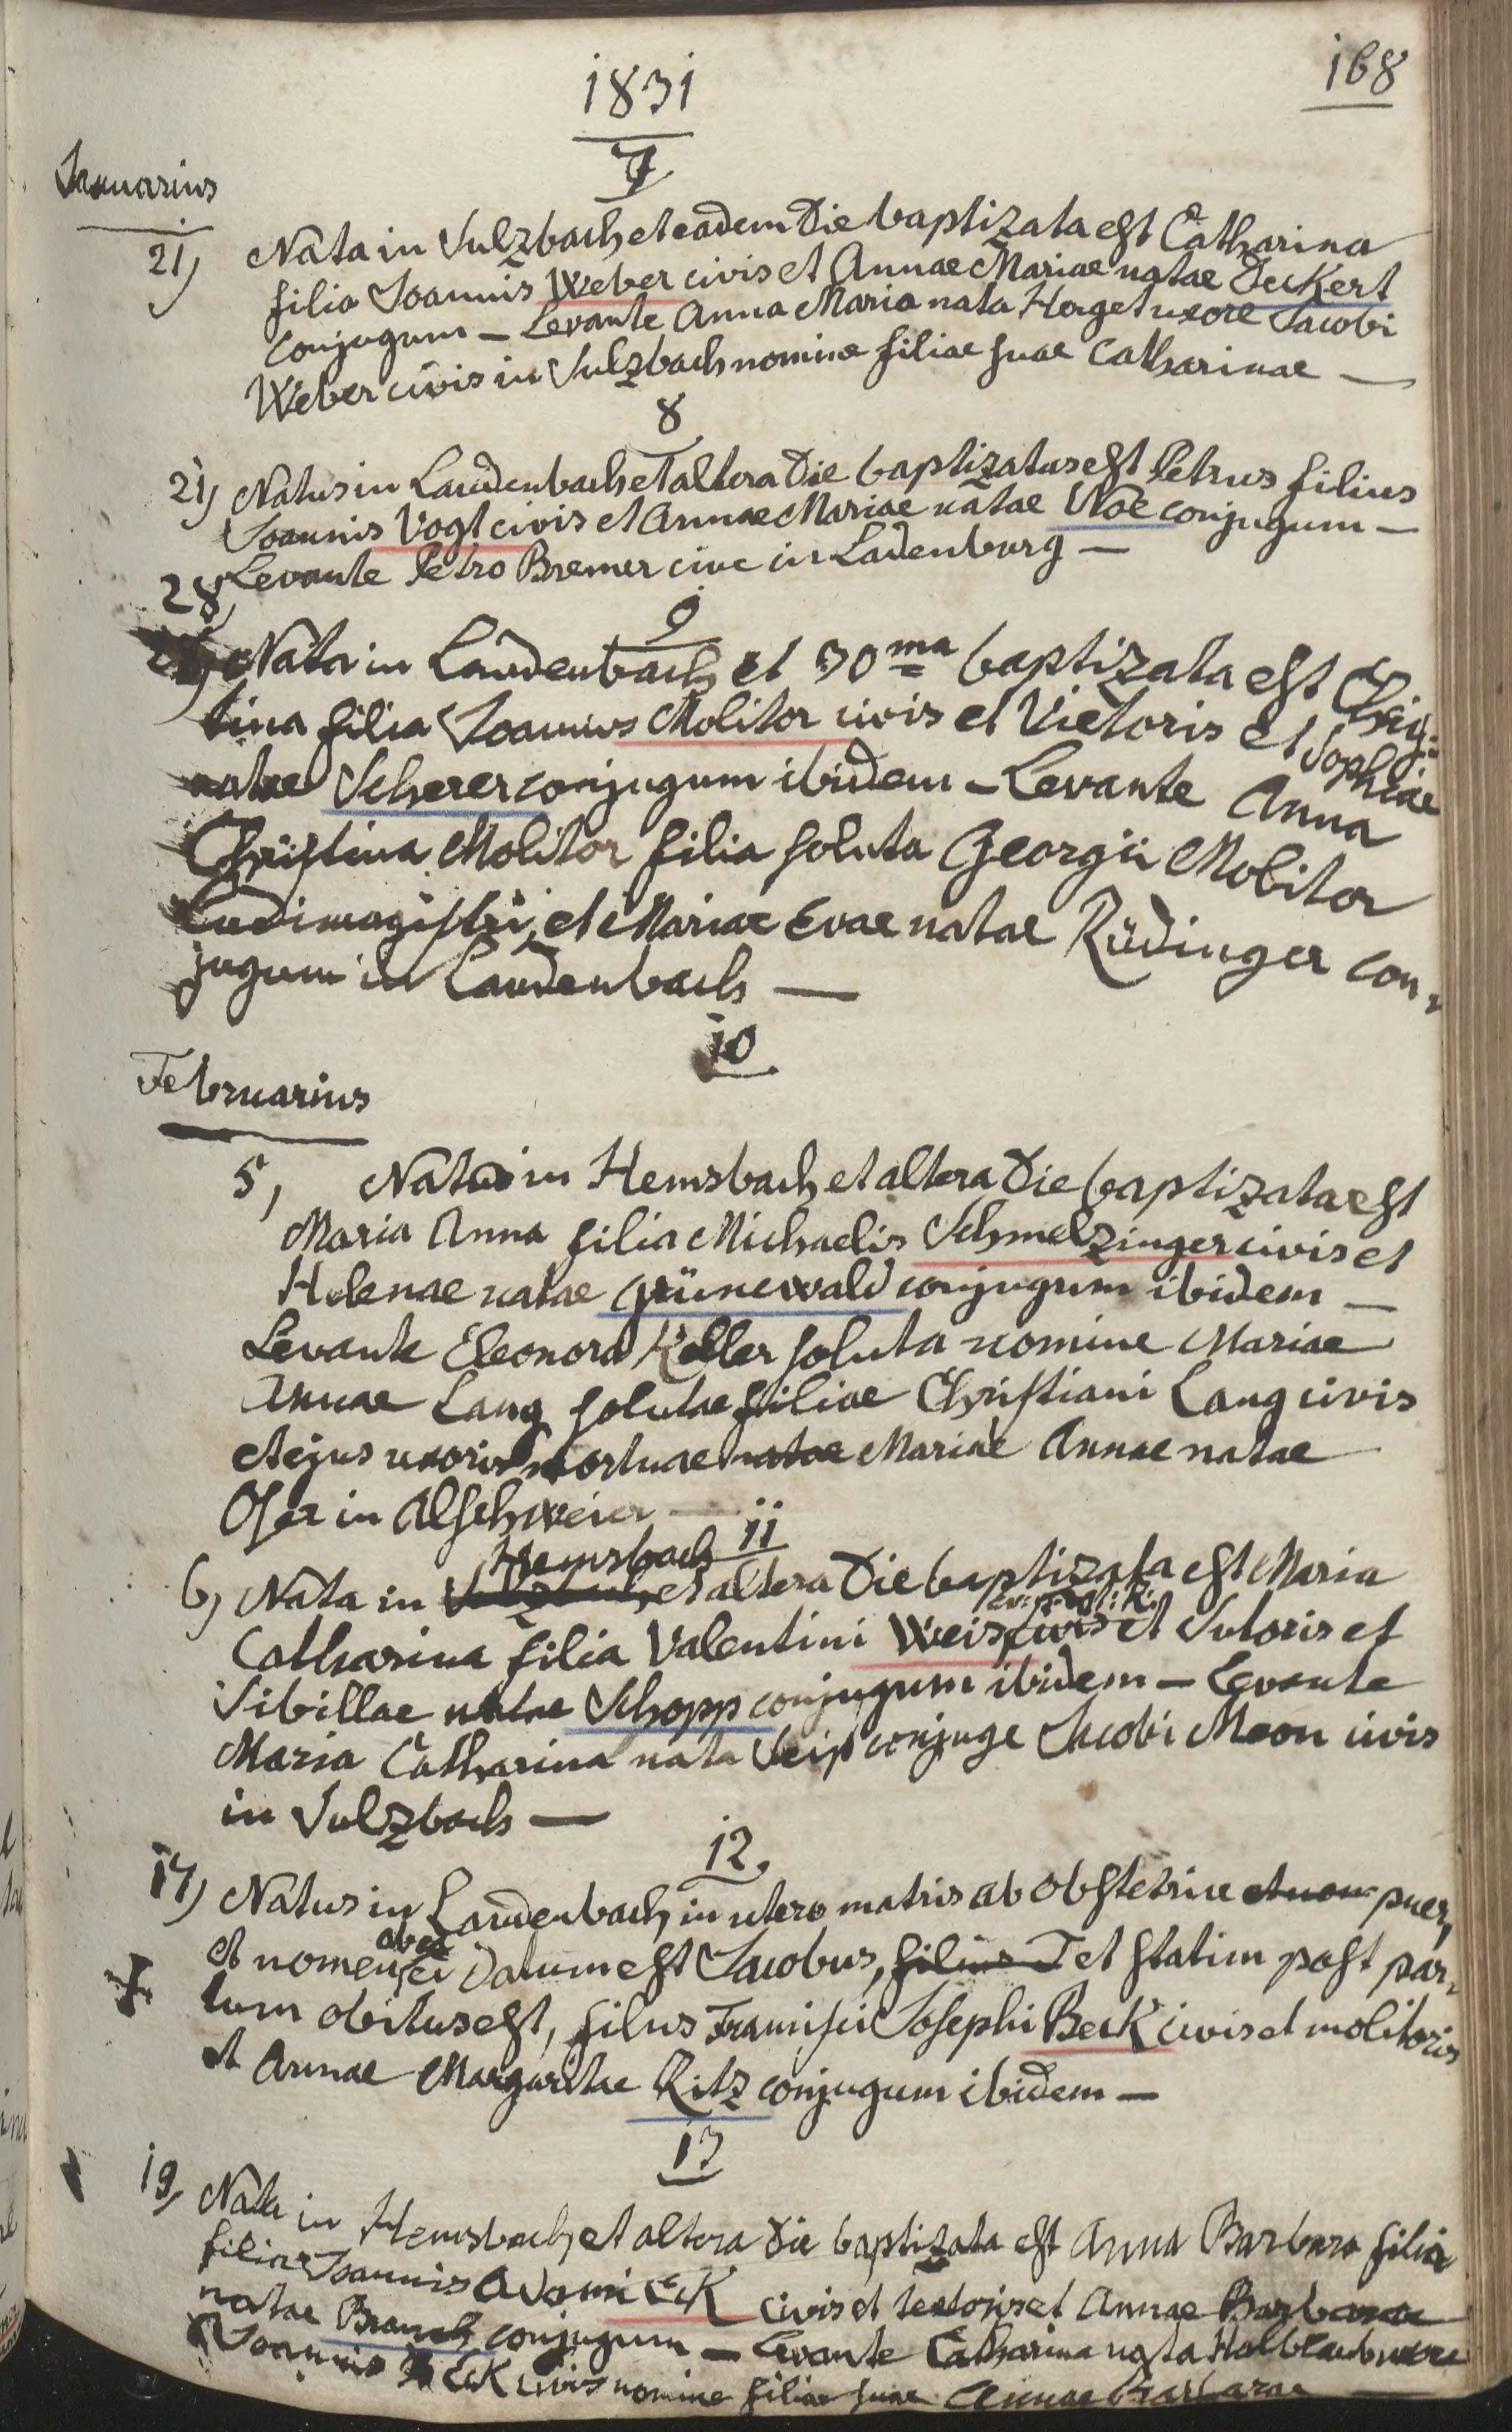 168
1831
7
Januarius
21) Nata in Sulzbach et eadem Die baptizata est Catharina
filia Joannis Weber civis et Annae Mariae natae Jeckert
conjugum – Levante Anna Maria nata Horget uxore Jacobi
Weber civis in Sulzbach nomine filiae suae Catharinae –
8
21) Natus in Laudenbach et altera Die baptizatus est Petrus filius
Joannis Vogt civis et Annae Mariae natae Noe conjugum –
Levante Petro Bremer cive in Ladenburg –
9
28) Nata in Laudenbach et 30ma baptizata est Chris:
tina filia Joannis Molitor civis et Vietoris et Sophiae
natae Scherer conjugum ibidem – Levante Anna
Christina Molitor filia soluta Georgii Molitor
Ludimagistri, et Mariae Evae natae Rüdinger con,
jugum in Laudenbach –
10
Februarius
5, Nata in Hemsbach et altera Die baptizata est
Maria Anna filia Michaelis Schmelzinger civis et
Helenae natae Grünewald conjugum ibidem –
Levante Eleonora Keller soluta nomine Mariae
Annae Lang solutae filiae Christiani Lang civis
et ejus uxoris mortuae natae Mariae Annae natae
Oser in Alschweier –
11
6) Nata in Sulzbach Hemsbach et altera Die baptizata est Maria
Catharina filia Valentini Weis civis et Sutoris et
Sibillae natae Schopp conjugum ibidem – Levante
Maria Catharina nata Seip conjuge Jacobi Meon civis
in Sulzbach –
12.
17) Natus in Laudenbach, in utero matris ab obstetrice et non puer,
et nomen ab ea ei Datum est Jacobus, filius J et statim post par,
tum obitus est, filus Francisci Josephi Beck civis et molitoris
et Annae Margaritae Ritz conjugum ibidem –
13
19, Nata in Hemsbach, et altera Die baptizata est Anna Barbara filia
filiae Joannis Adami Eck civis et textoris et Annae Barbarae
natae Branch conjugum – Levante Catharina nata Halblaub uxore
Joannis Eck civis nomine filiae suae Annae Barbarae